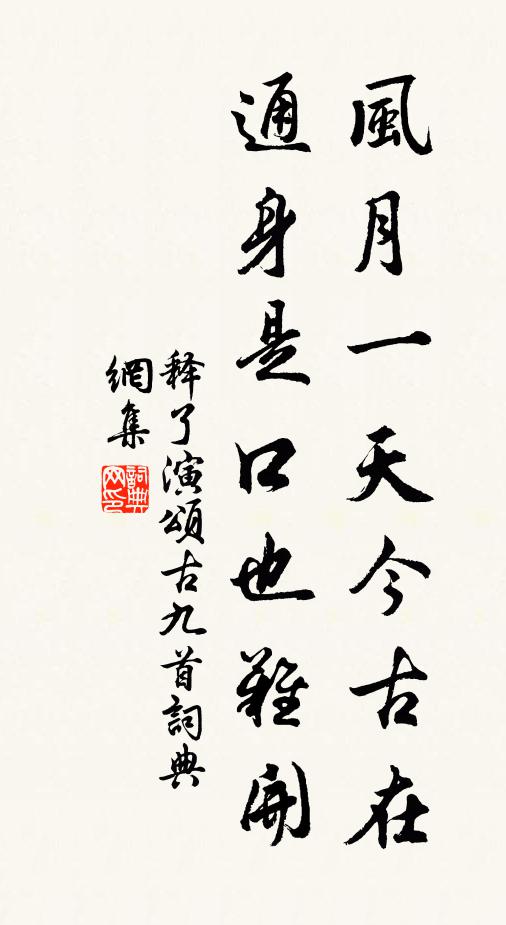 風月一天今古在
通身是口也難開
释了演頌古九首詞典
網集
詞典
网印